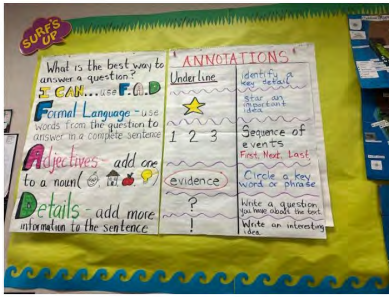 SURF'S UP
What is the best way to
answer a question?
I CAN...use F.A.D
Formal Language - use
words from the question to
answer in a complete sentence
Adjectives - add one
to a noun(
Details - add more
information to the sentence
ANNOTATIONS
Underline
identify a
key detail
star an
important
idea
1 2 3
Sequence of
events
First, Next, Last
evidence
Circle a key
word or phrase
?
Write a question
you have about the text
!
Write an interesting
idea